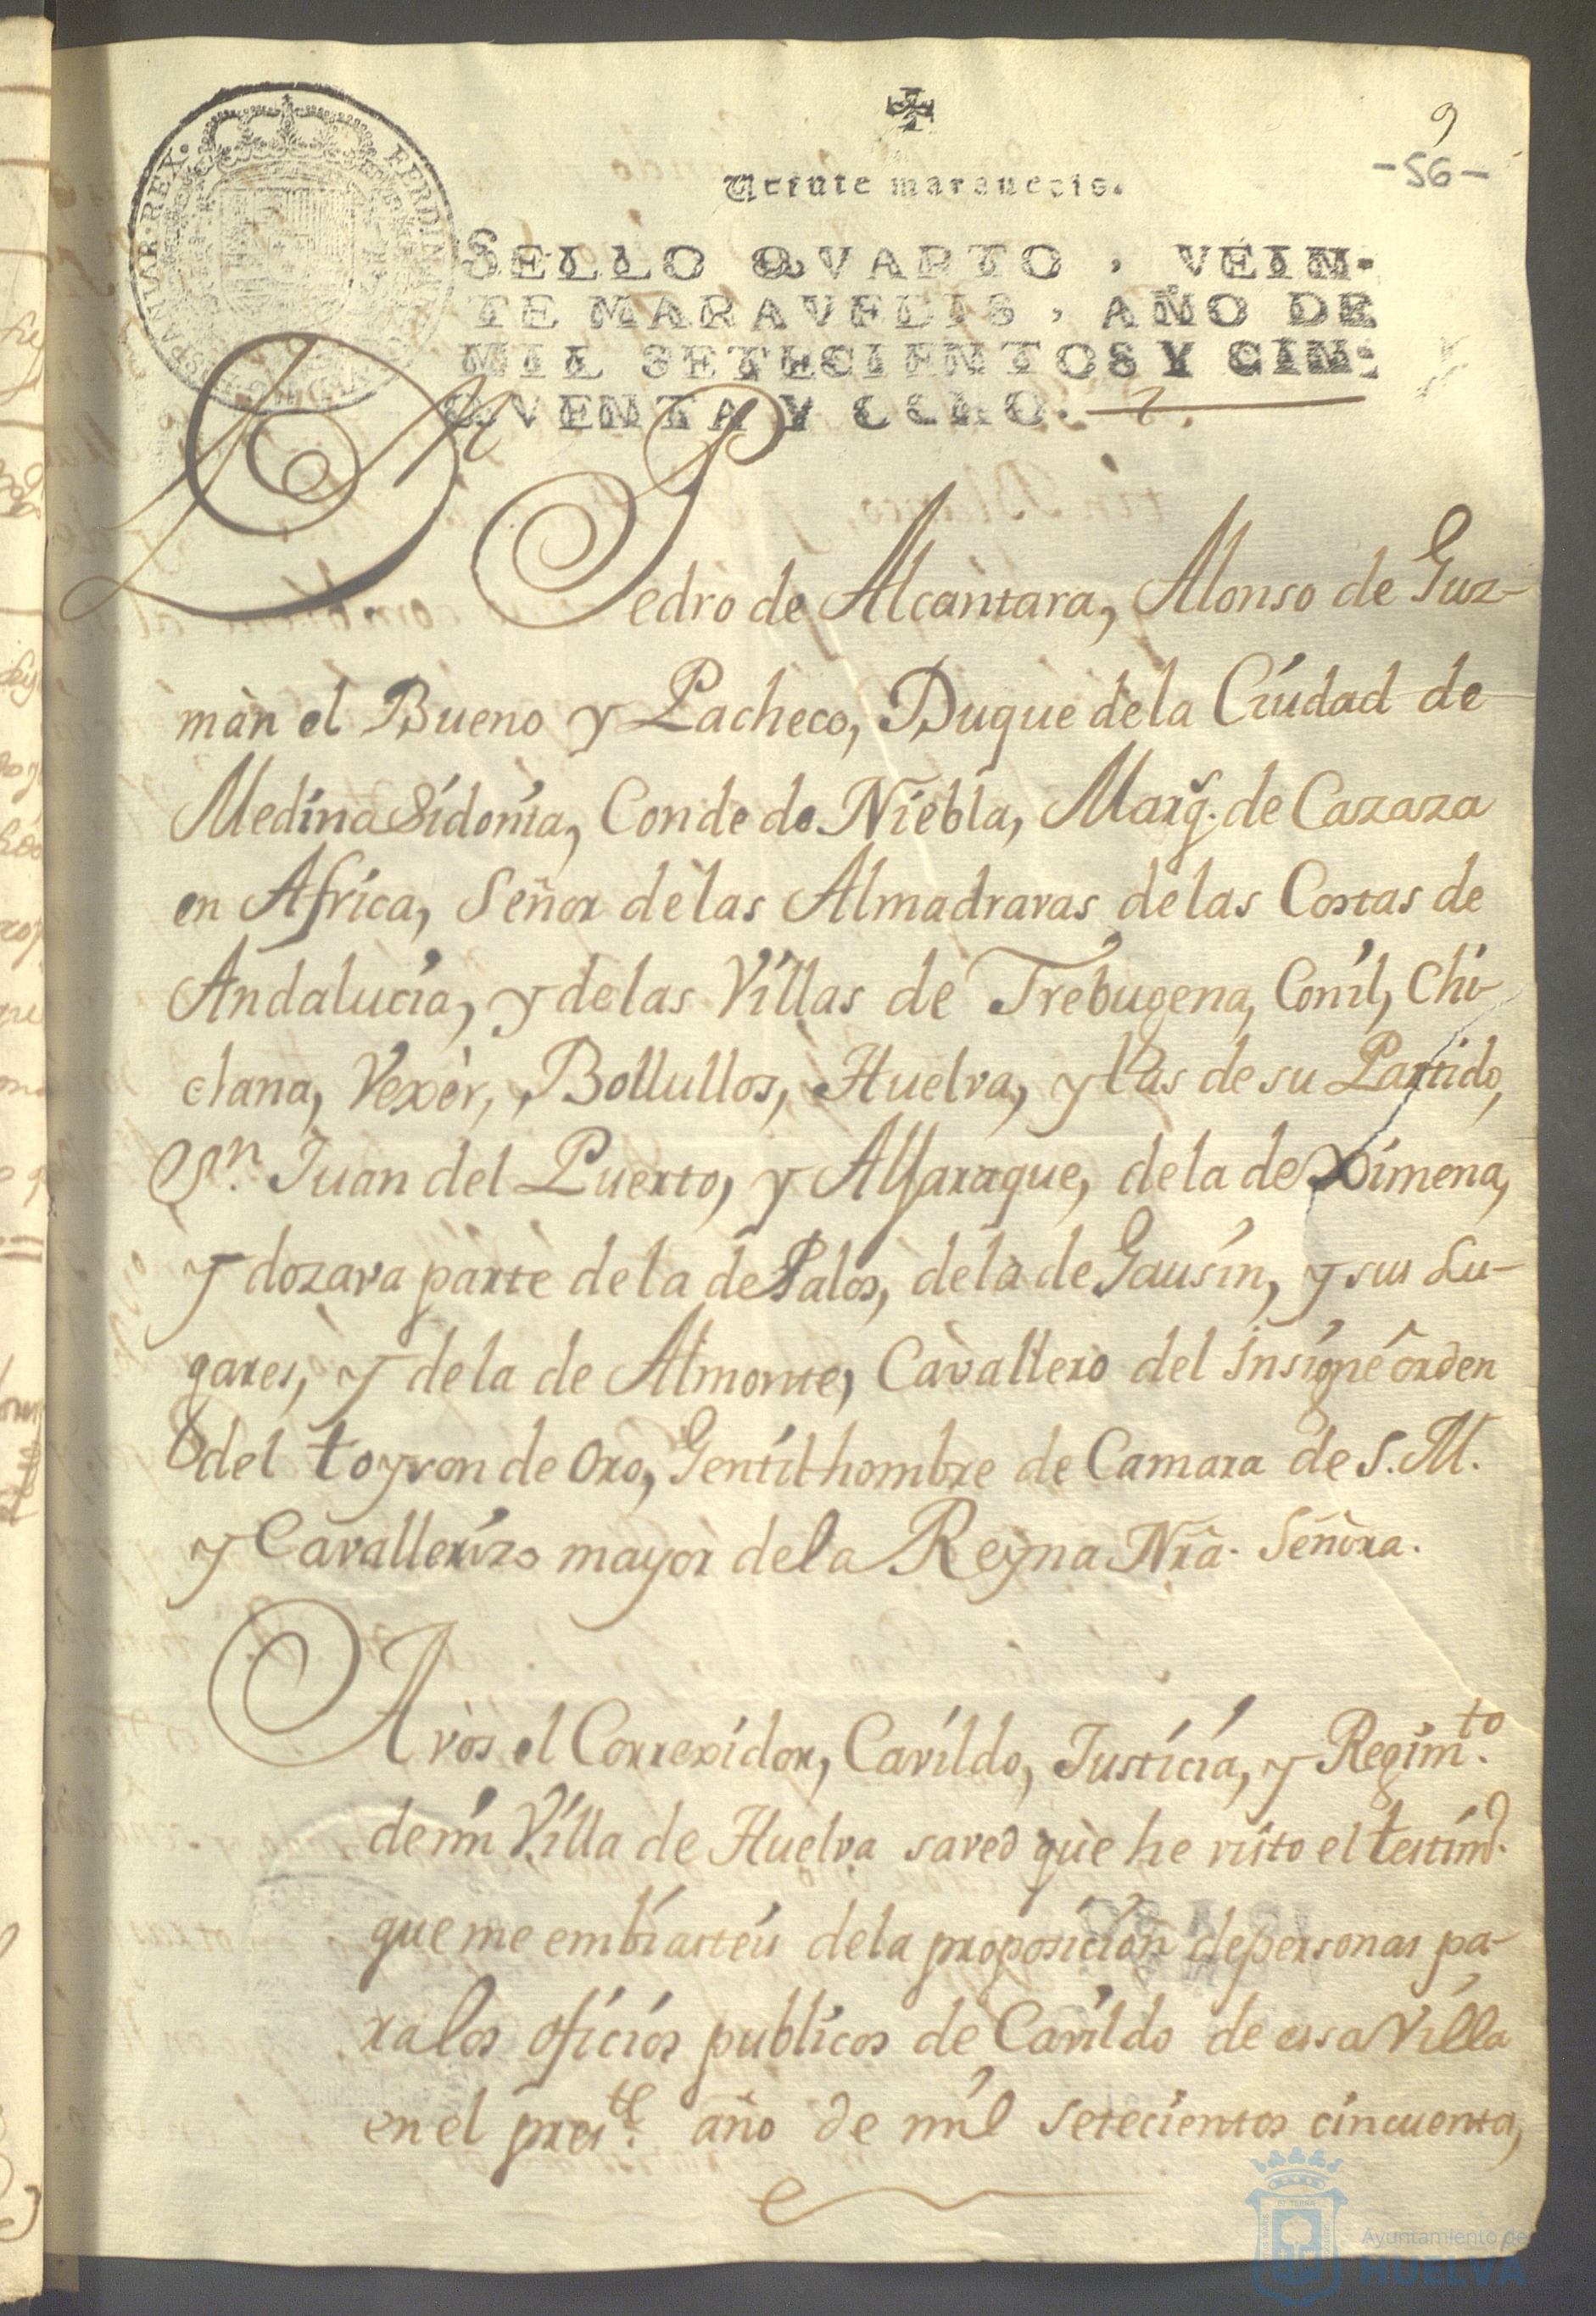 9
-56-
Veinte maravedis.
SELLO QVARTO, VEIN-
TE MARAVEDIS, AÑO DE
MIL SETECIENTOS Y CIN-
QVENTA Y OCHO.
HISPANIAR·REX·
FERDINAND
Dn Pedro de Alcàntara, Alonso de Guz-
màn el Bueno y Pacheco, Duque de la Ciudad de
Medina Sidonia, Conde de Niebla, Marqs. de Cazaza
en Africa, Señor de las Almadravas de las Costas de
Andalucia, y de las Villas de Trebugena, Conil, Chi-
clana, Vexèr, Bollullos, Huelva, y las de su Partido,
Sn. Juan del Puerto, y Aljaraque, de la de Ximena,
y dozava parte de la de Palos, de la de Gausin, y sus Lu-
gares, y de la de Almonte, Cavallero del insigne òrden
del toyson de Oro, Gentilhombre de Camara de S. M.
y Cavallerizo mayor de la Reyna Nrâ. Señora.
A vòs el Correxidor, Cavildo, Justicia, y Regimto.
de mi Villa de Huelva saved que he visto el testimo.
que me embiasteis de la proposicion de personas pa-
ra los oficios publicos de Cavildo de essa Villa
en el preste. año de mil setecientos cincuenta,
Ayuntamiento de
HUELVA